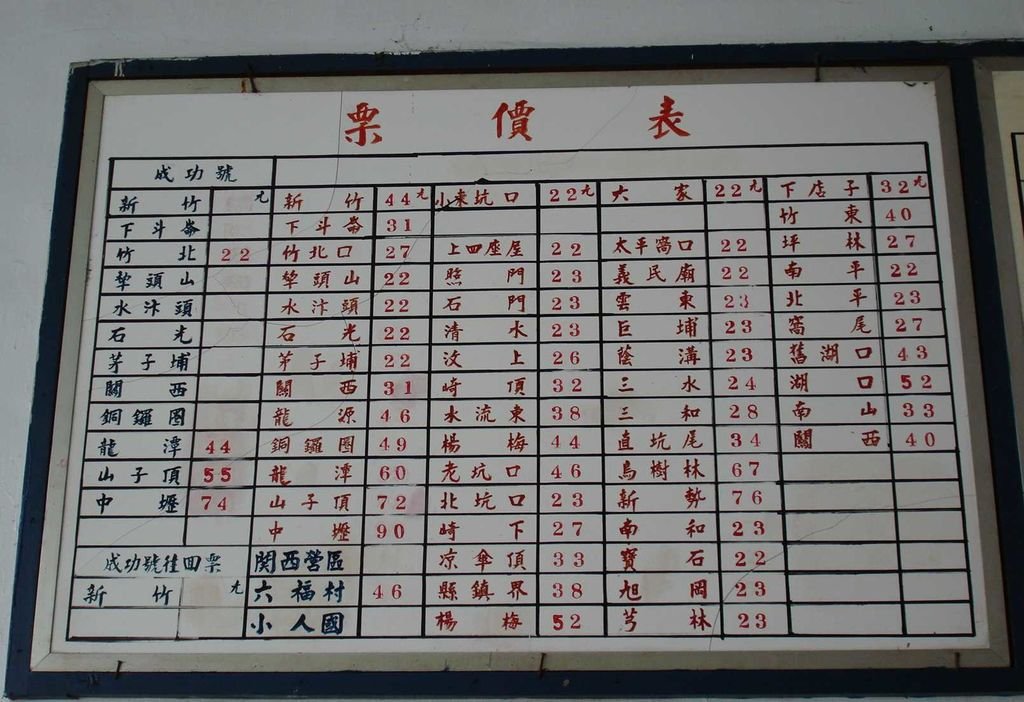 票價表
成功號
新竹 元 新竹 44元 小東坑口 22元 六家 22元 下店子 32元
下斗崙 下斗崙 31 竹東 40
竹北 22 竹北口 27 上四座屋 22 太平窩口 22 坪林 27
犂頭山 犂頭山 22 照門 23 義民廟 22 南平 22
水汴頭 水汴頭 22 石門 23 雲東 23 北平 23
石光 石光 22 清水 23 巨埔 23 窩尾 27
茅子埔 茅子埔 22 汶上 26 蔭溝 23 舊湖口 43
關西 關西 31 崎頂 32 三水 24 湖口 52
銅鑼圈 龍源 46 水流東 38 三和 28 南山 33
龍潭 44 銅鑼圈 49 楊梅 44 直坑尾 34 關西 40
山子頂 55 龍潭 60 老坑口 46 烏樹林 67
中壢 74 山子頂 72 北坑口 23 新勢 76
中壢 90 崎下 27 南和 23
成功號往回票 関西營區 凉傘頂 33 寶石 22
新竹 元 六福村 46 縣鎮界 38 旭岡 23
小人國 楊梅 52 芎林 23